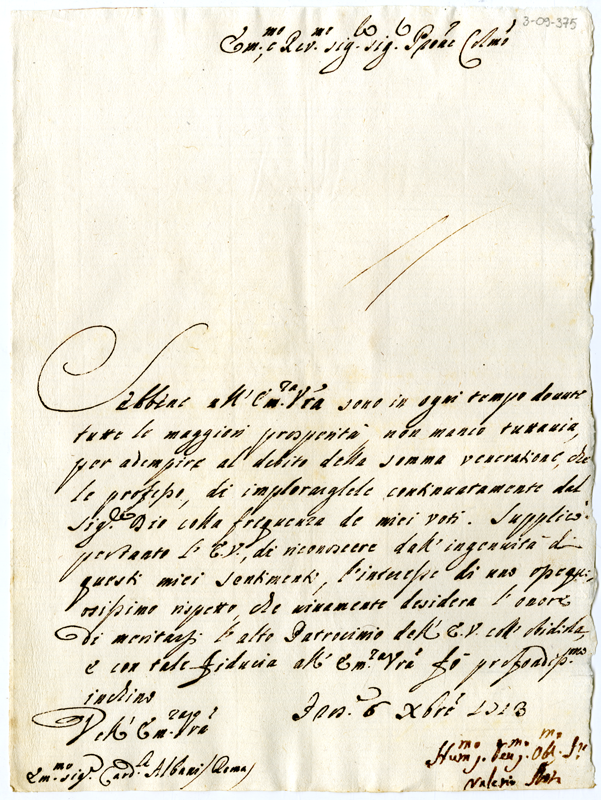 3-09-375
Em.mo e Rev.mo sig.r sig.r Pron.e Colmo
Sabbene all' Em.za Vra sono in ogni tempo dovute
tutte le maggiori prosperità, non manco tuttavia,
per adempire al debito della somma veneratione, che
le professo, di implorarglele continuatamente dal
Sig.r Dio colla frequenza de miei voti. Supplico
pertanto l' E.V., di riconoscere dall' ingenuità di
questi miei sentimenti, l'interesse di uno ossequi
osissimo rispetto, che vivamente desidera l' onore
di meritarsi l'alto Patrocinio dell' E.V. coll' obidirla,
e con tale fiducia all' Em.za Vra fò profondiss.mo
inchino
Dell' Em.za Vra
6 Xbre 1713
Em.mo sig.r Card.le Albani (Roma)
Hum.mo Dev.mo Obl. S.re
Valerio